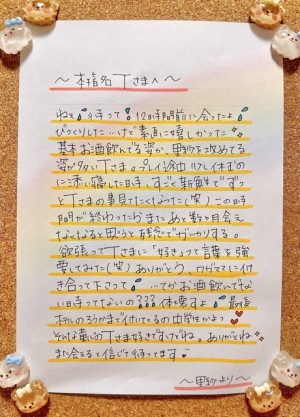 ～本指名Tさまへ～
ねぇ待って!12時間前に会ったよ
びっくりした…けど素直に嬉しかった
基本お酒飲んでる姿か、里紗を攻めてる
姿が多いTさま。プレイ途中
に添い寝した時、すごく新鮮でずっ
とTさまの事見てたくなった(笑)この時
間が終わったらまたあと数ヶ月会え
なくなると思うと残念でガッカリする。
欲張ってTさまに"好き"って言葉を強
要してみた(笑)ありがとう、ワガママに付
き合って下さって…てかお酒飲んでな
い日ってないの?体壊すよ 最後
までついてくるの中学生かよっ
そんな Tさま好きですけどね。ありがとね
また会えると信じて待ってます
～里紗より～